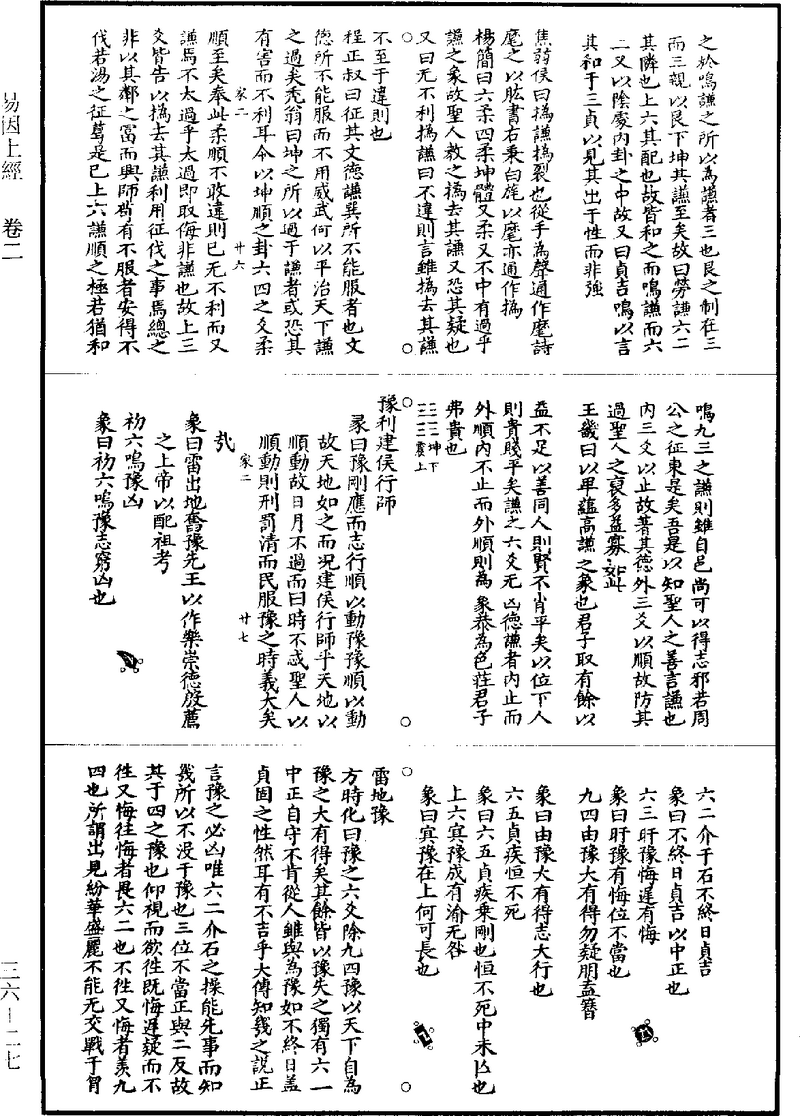 易因上經　卷二
三六—二七
之於鳴謙之所以為謙者三也艮之制在三
而三親以艮下坤共謙至矣故曰勞謙六二
其隣也上六其配也故皆和之而鳴謙而六
二又以陰處內卦之中故又曰貞吉鳴以言
其和于三貞以見其出于性而非強
焦弱侯曰撝謙撝裂也從手為聲通作麾詩
麾之以肱書右秉白旄以麾亦通作撝
楊簡曰六柔四柔坤體又柔又不中有過乎
謙之象故聖人教之撝去其謙又恐其疑也
又曰无不利撝謙曰不違則言雖撝去其謙
不至于違則也
程正叔曰征其文德謙巽所不能服者也文
德所不能服而不用威武何以平治天下謙
之過矣禿翁曰坤之所以過于謙者或恐其
有害而不利耳今以坤順之卦六四之爻柔
家二　廿六
順至矣奉此柔順不敢違則已无不利而又
謙焉不太過乎太過即取侮非謙也故上三
爻皆告以撝去其謙利用征伐之事焉總之
非以其鄰之富而興師啻有不服者安得不
伐若湯之征葛是已上六謙順之極若猶和
鳴九三之謙則雖自邑尚可以得志邪若周
公之征東是矣吾是以知聖人之善言謙也
內三爻以止故著其德外三爻以順故防其
過聖人之裒多益寡如此
王畿曰以卑蘊高謙之象也君子取有餘以
益不足以善同人則賢不肖平矣以位下人
則貴賤平矣謙之六爻无凶德謙者內止而
外順內不止而外順則為象恭為色莊君子
弗貴也
䷏坤下震上
豫利建侯行師
彖曰豫剛應而志行順以動豫豫順以動
故天地如之而況建侯行師乎天地以
順動故日月不過而曰時不忒聖人以
順動則刑罰清而民服豫之時義大矣
家二　廿七
㢤
象曰雷出地奮豫先王以作樂崇德殷薦
之上帝以配祖考
初六鳴豫凶
象曰初六鳴豫志窮凶也
六二介于石不終日貞吉
象曰不終日貞吉以中正也
六三盱豫悔遲有悔
象曰盱豫有悔位不當也
九四由豫大有得勿疑朋盍簪
象曰由豫大有得志大行也
六五貞疾恒不死
象曰六五貞疾乘剛也恒不死中未亡也
上六冥豫成有渝无咎
象曰冥豫在上何可長也
雷地豫
方時化曰豫之六爻除九四豫以天下自為
豫之大有得矣其餘皆以豫失之獨有六一
中正自守不肯從人雖與為豫如不終日蓋
貞固之性然耳有不吉乎大傳知幾之說正
言豫之必凶唯六二介石之操能先事而知
幾所以不浸于豫也三位不當正與二反故
其于四之豫也仰視而欲徃既悔遲疑而不
徃又悔徃悔者畏六二也不徃又悔者羨九
四也所謂出見紛華盛麗不能无交戰于胷